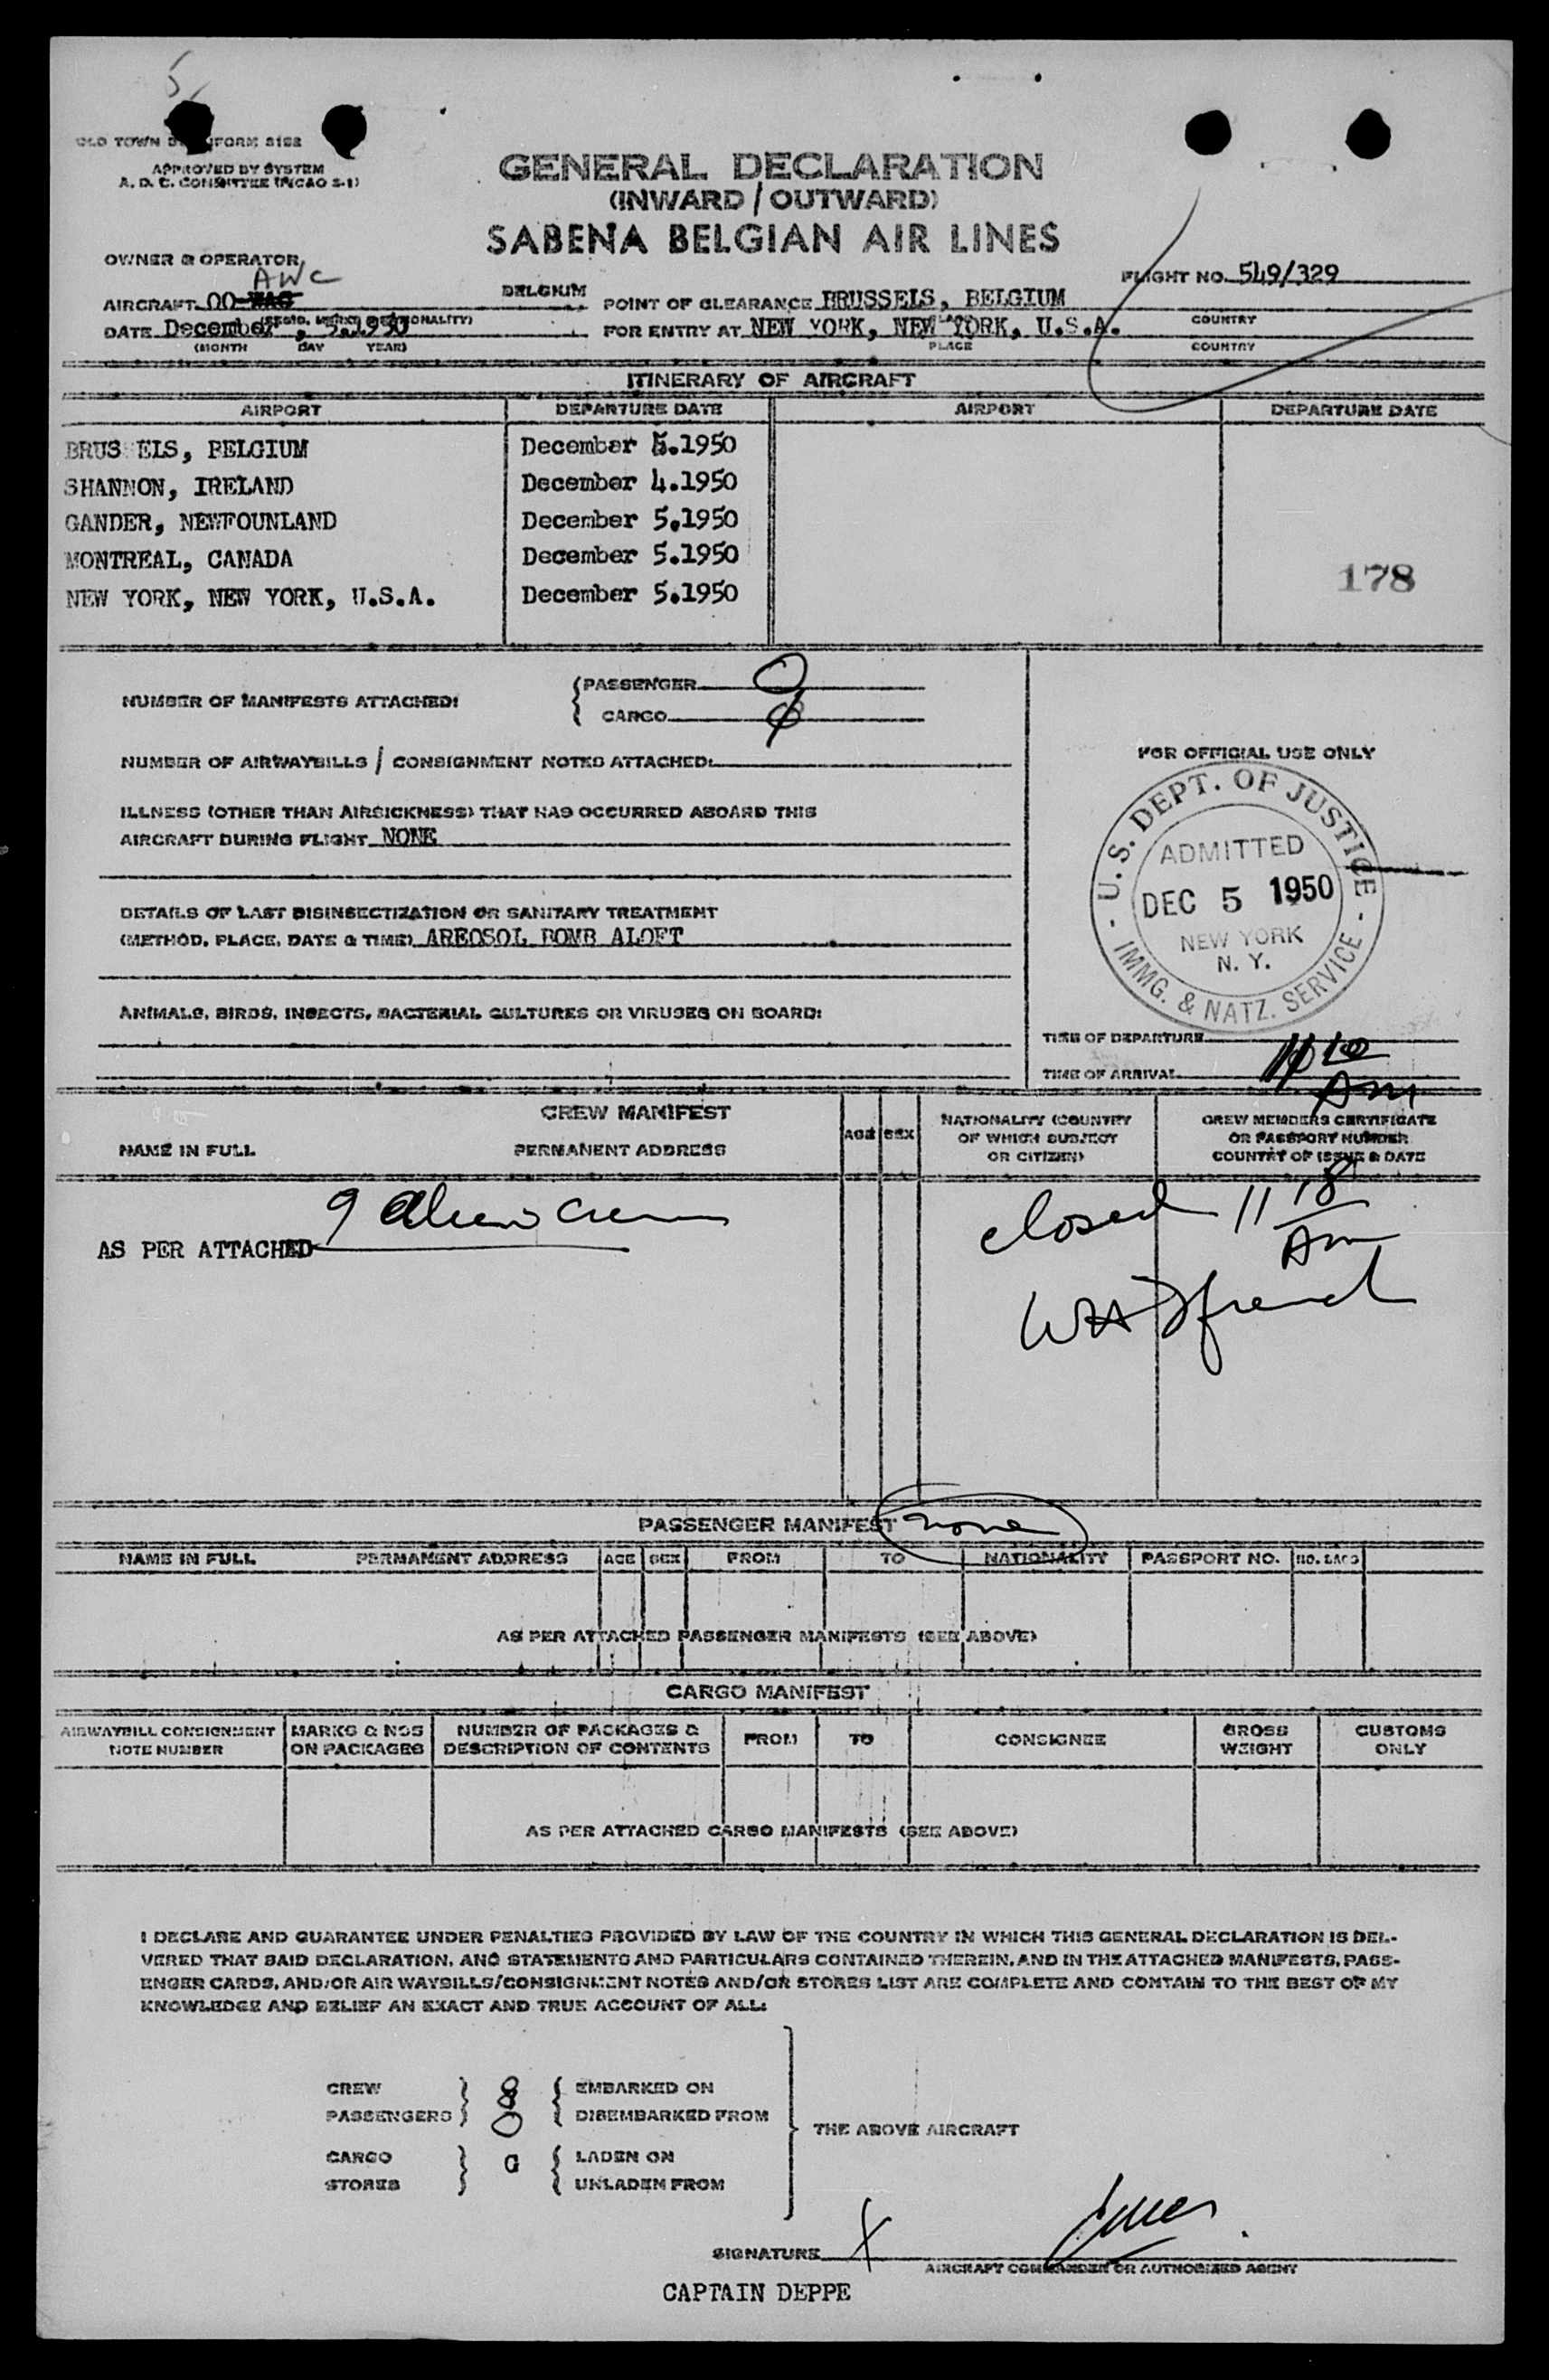 5
OLD TOWN FORM 5192
APPROVED BY SYSTEM
A. D. C. COMMITTEE (PICAO S-1)
GENERAL DECLARATION
(INWARD / OUTWARD)
SABENA BELGIAN AIR LINES
OWNER & OPERATOR
AWC
FLIGHT NO. 549/329
AIRCRAFT OO- BELGIUM POINT OF CLEARANCE BRUSSELS, BELGIUM
COUNTRY
DATE December , 5.1950 FOR ENTRY AT NEW YORK, NEW YORK, U.S.A.
(MONTH DAY YEAR) PLACE COUNTRY
ITINERARY OF AIRCRAFT
AIRPORT DEPARTURE DATE AIRPORT DEPARTURE DATE
BRUS ELS, BELGIUM December 5.1950
SHANNON, IRELAND December 4.1950
GANDER, NEWFOUNLAND December 5.1950
MONTREAL, CANADA December 5.1950
NEW YORK, NEW YORK, U.S.A. December 5.1950
178
NUMBER OF MANIFESTS ATTACHED: PASSENGER 0
CARGO
NUMBER OF AIRWAYBILLS / CONSIGNMENT NOTES ATTACHED:
FOR OFFICIAL USE ONLY
ILLNESS (OTHER THAN AIRSICKNESS) THAT HAS OCCURRED ABOARD THIS
AIRCRAFT DURING FLIGHT NONE
U.S. DEPT. OF JUSTICE
ADMITTED
DEC 5 1950
NEW YORK
N. Y.
IMMG. & NATZ. SERVICE
DETAILS OF LAST DISINSECTIZATION OR SANITARY TREATMENT
(METHOD, PLACE, DATE & TIME) AREOSOL BOMB ALOFT
ANIMALS, BIRDS, INSECTS, BACTERIAL CULTURES OR VIRUSES ON BOARD:
TIME OF DEPARTURE
TIME OF ARRIVAL 10 AM
CREW MANIFEST
NAME IN FULL PERMANENT ADDRESS AGE SEX NATIONALITY (COUNTRY OF WHICH SUBJECT OR CITIZEN) CREW MEMBERS CERTIFICATE OR PASSPORT NUMBER COUNTRY OF ISSUE & DATE
9 Alien Crew
AS PER ATTACHED
closed 11 18 AM
PASSENGER MANIFEST none
NAME IN FULL PERMANENT ADDRESS AGE SEX FROM TO NATIONALITY PASSPORT NO. NO. BAGS
AS PER ATTACHED PASSENGER MANIFESTS (SEE ABOVE)
CARGO MANIFEST
AIRWAYBILL CONSIGNMENT NOTE NUMBER MARKS & NOS ON PACKAGES NUMBER OF PACKAGES & DESCRIPTION OF CONTENTS FROM TO CONSIGNEE GROSS WEIGHT CUSTOMS ONLY
AS PER ATTACHED CARGO MANIFESTS (SEE ABOVE)
I DECLARE AND GUARANTEE UNDER PENALTIES PROVIDED BY LAW OF THE COUNTRY IN WHICH THIS GENERAL DECLARATION IS DEL-
VERED THAT SAID DECLARATION, AND STATEMENTS AND PARTICULARS CONTAINED THEREIN, AND IN THE ATTACHED MANIFESTS, PASS-
ENGER CARDS, AND/OR AIR WAYBILLS/CONSIGNMENT NOTES AND/OR STORES LIST ARE COMPLETE AND CONTAIN TO THE BEST OF MY
KNOWLEDGE AND BELIEF AN EXACT AND TRUE ACCOUNT OF ALL:
CREW 8 EMBARKED ON
PASSENGERS 0 DISEMBARKED FROM
THE ABOVE AIRCRAFT
CARGO 0 LADEN ON
STORES UNLADEN FROM
SIGNATURE X
AIRCRAFT COMMANDER OR AUTHORIZED AGENT
CAPTAIN DEPPE